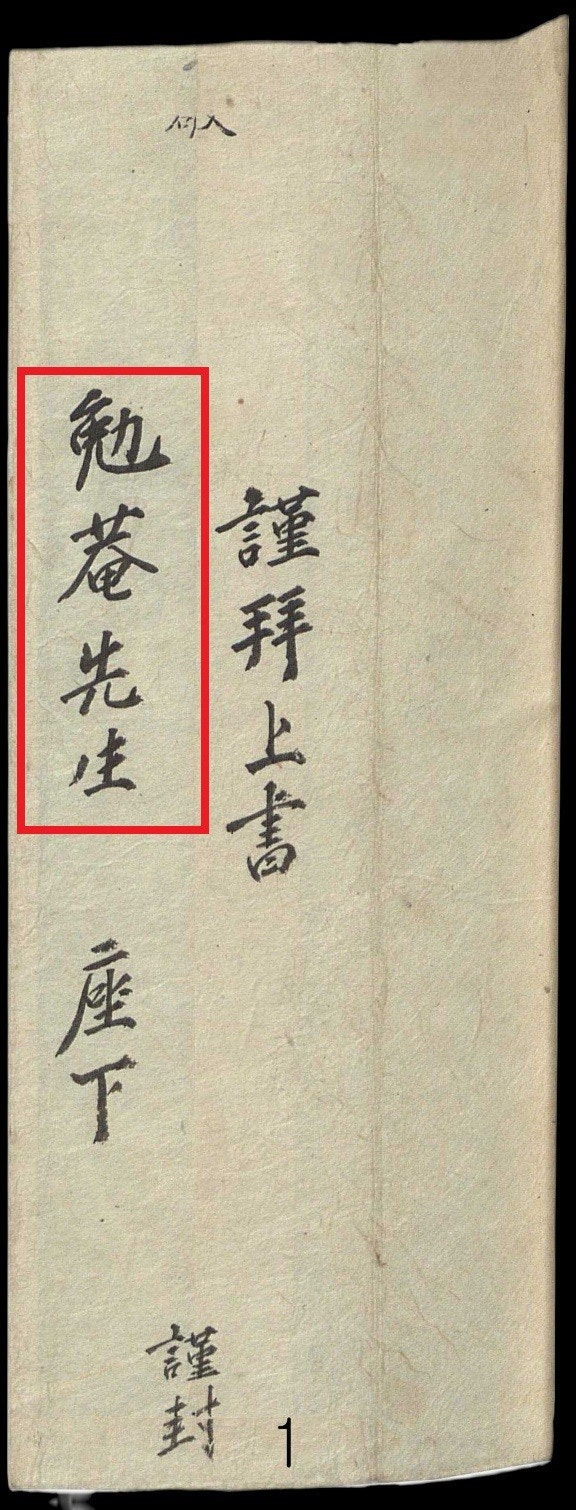 謹拜上書
勉菴先生 座下
謹封
1